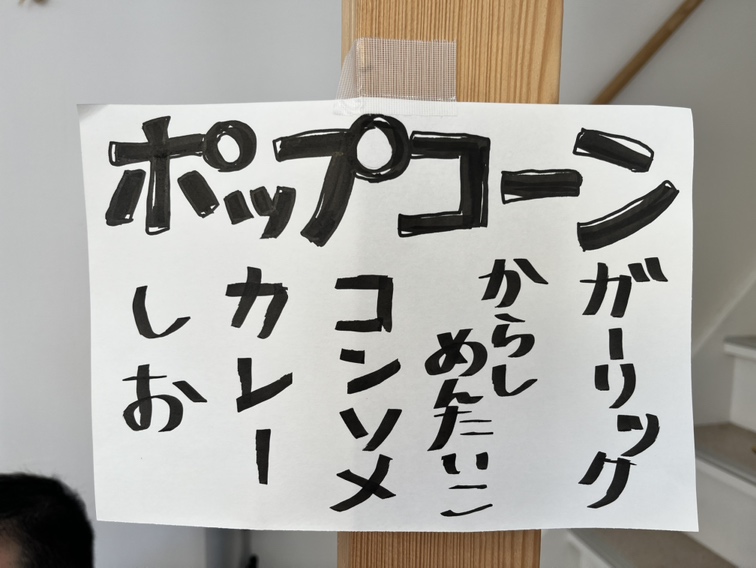 ポップコーン
ガーリック
からし
めんたいこ
コンソメ
カレー
しお